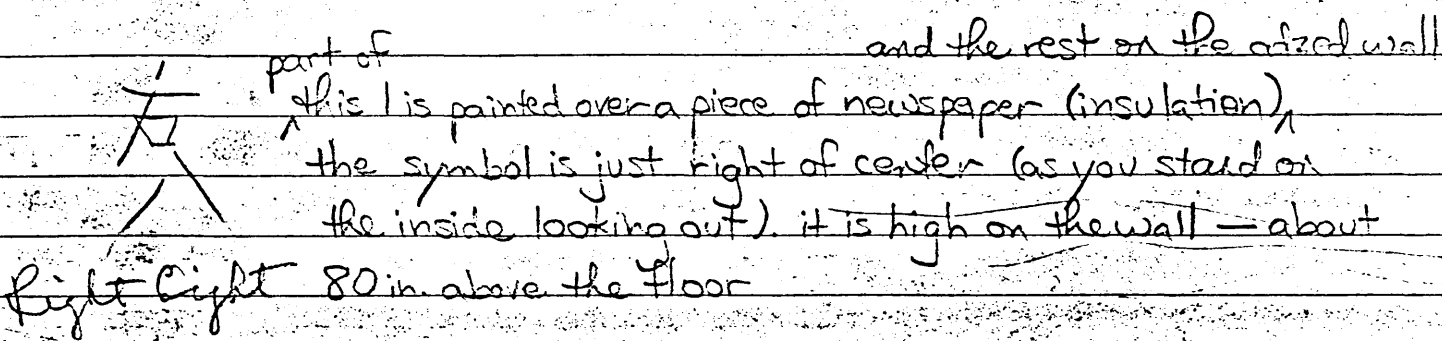 part of and the rest on the wall
^ this / is painted over a piece of newspaper (insulation)^
the symbol is just right of center (as you stand on
the inside looking out). it is high on the wall — about
80 in. above the floor
Right